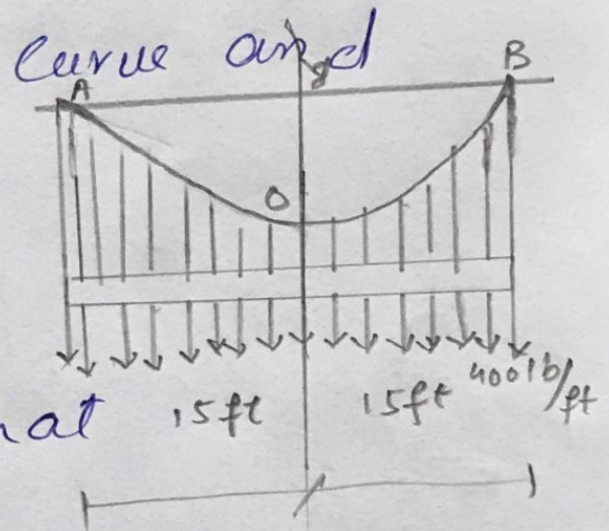 Curve and
y
A
B
O
nat 15ft 15ft 400 lb/ft